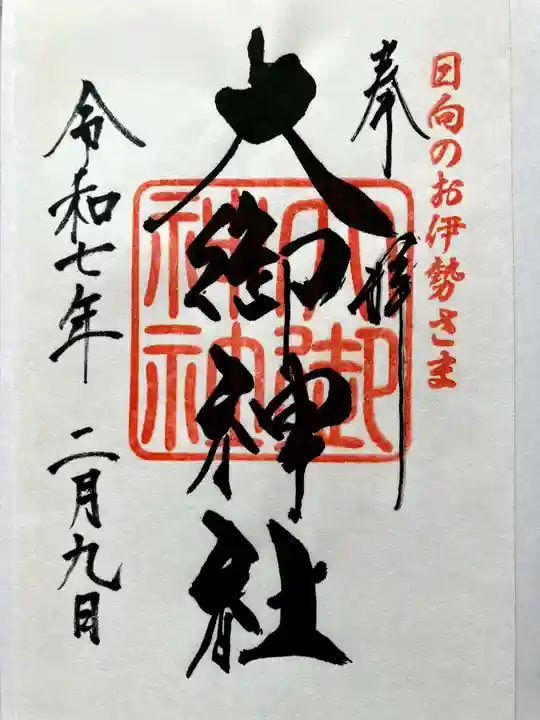 日向のお伊勢さま
奉拝
大御神社
大御
神社
令和七年 二月九日